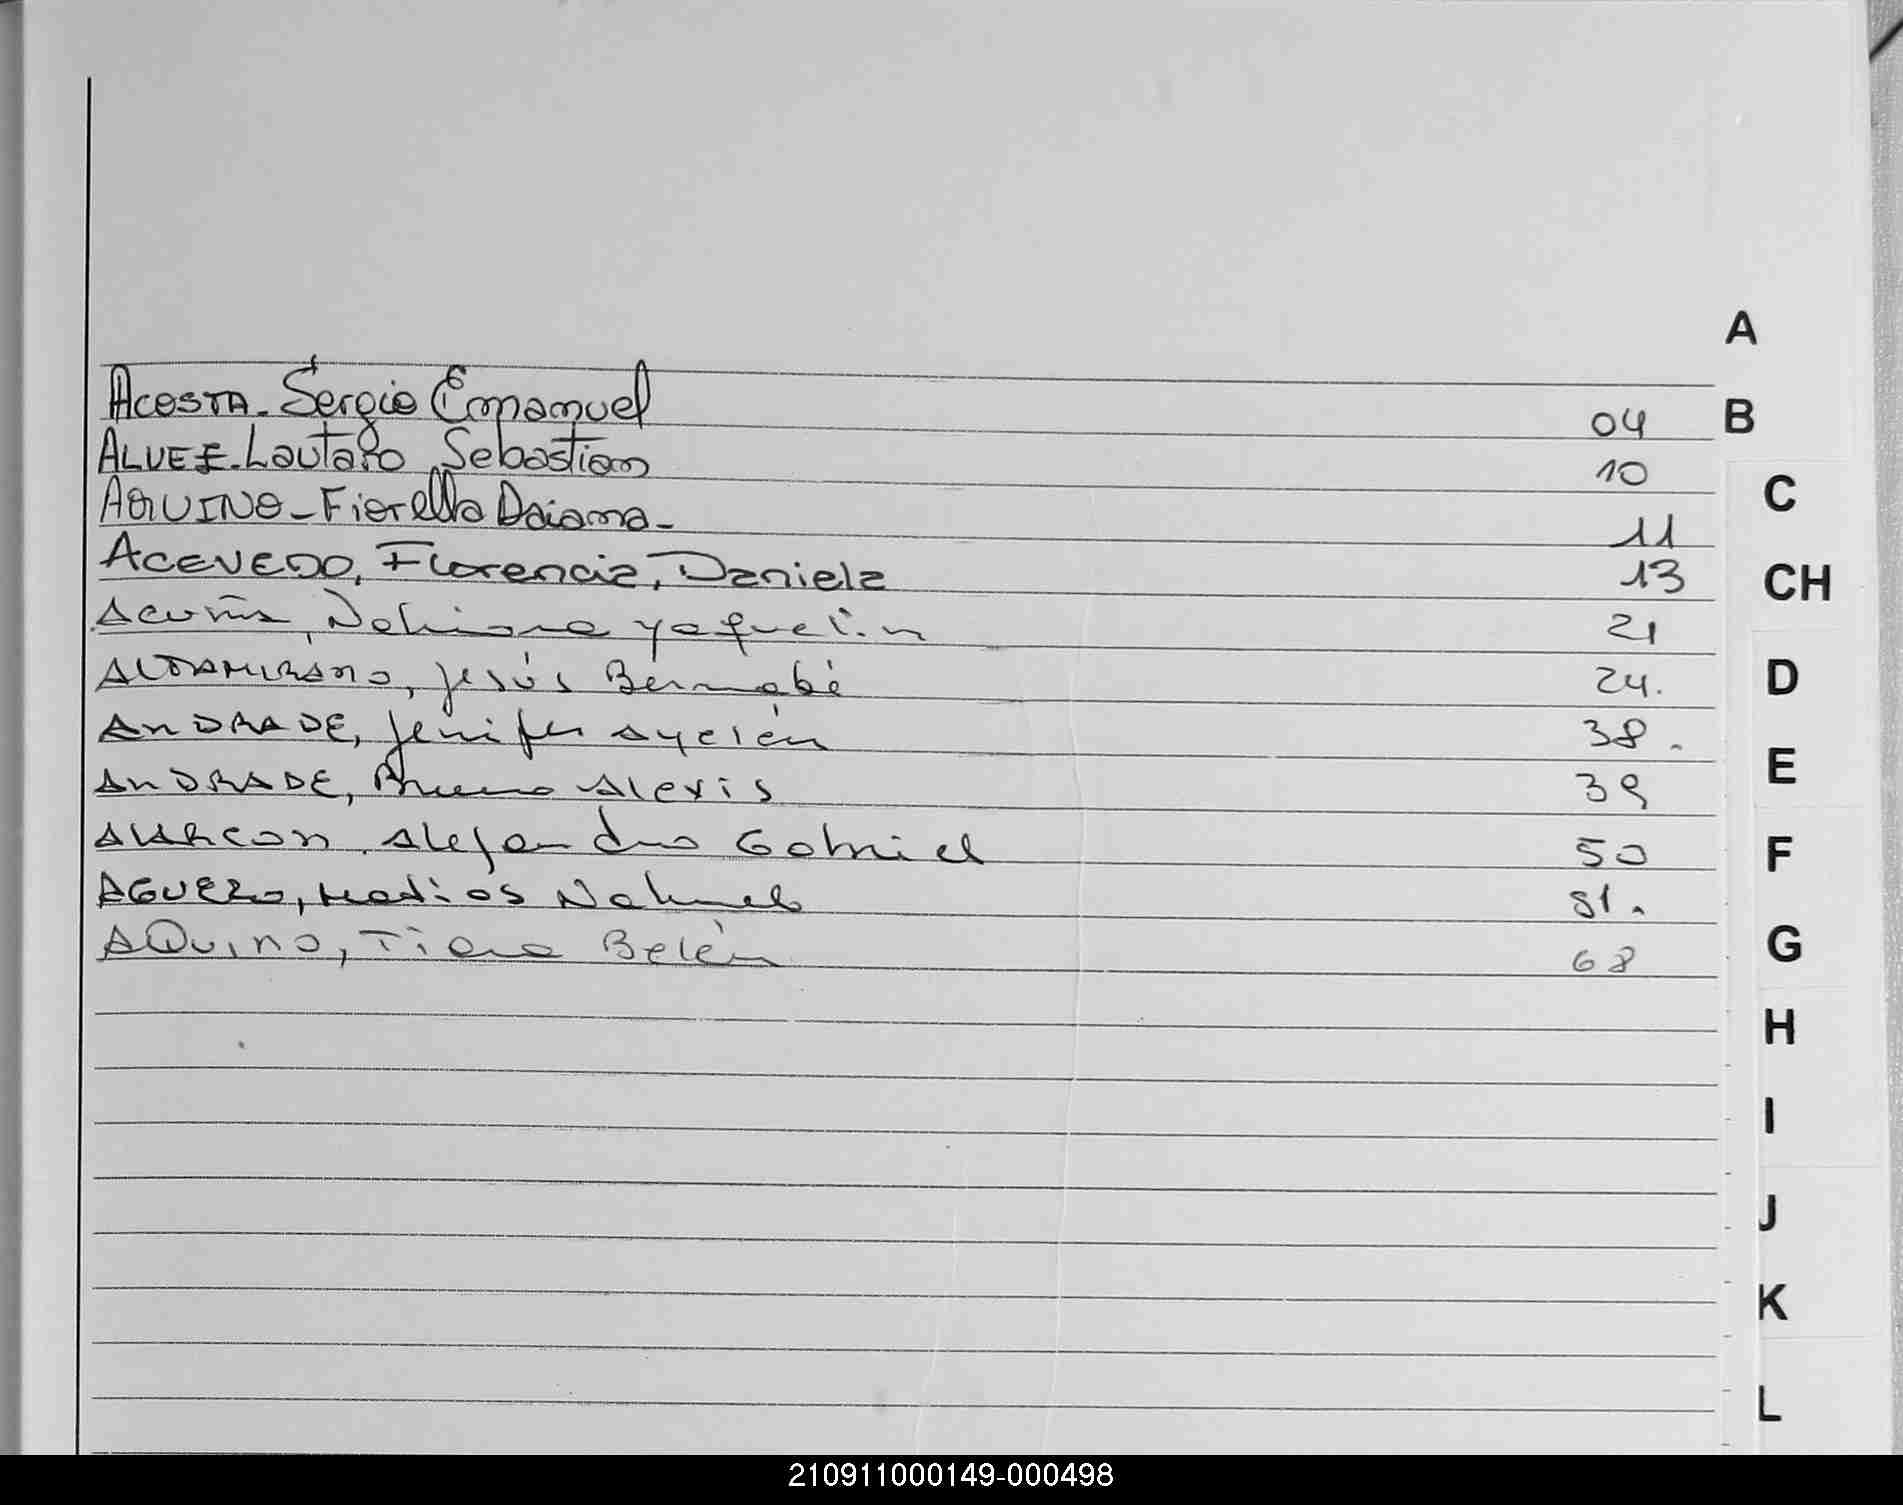 A
ACOSTA. Sergio Emanuel 04
B
ALVEZ. Lautaro Sebastian 10
C
AQUINO - Fiorella Daiana - 11
ACEVEDO, Florencia, Daniela 13
CH
Acuña, Nahiara yaquelin 21
ALTAMIRANO, Jesús Bernabé 24.
D
ANDRADE, Jenifer Ayelén 38.
E
ANDRADE, Bruno Alexis 39
ALARCON, Alejandro Gabriel 50
F
AGUERO, Matias Nahuel 51.
AQuino, Tiana Belén 68
G
H
I
J
K
L
210911000149-000498